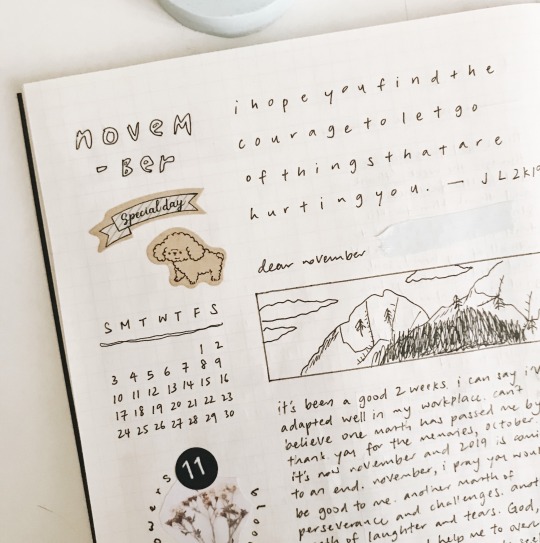 novem
-ber
Special day
S M T W T F S
1 2
3 4 5 6 7 8 9
10 11 12 13 14 15 16
17 18 19 20 21 22 23
24 25 26 27 28 29 30
11
i hope you find the
courage to let go
of things that are
hurting you. — JL2k19
dear november
it's been a good 2 weeks. i can say i've
adapted well in my workplace. can't
believe one month has passed me by
thank you for the memories, october.
it's now november and 2019 is
to an end. november, i pray you
be good to me. another month of
perseverance and challenges.
of laughter and tears. God,
help me to